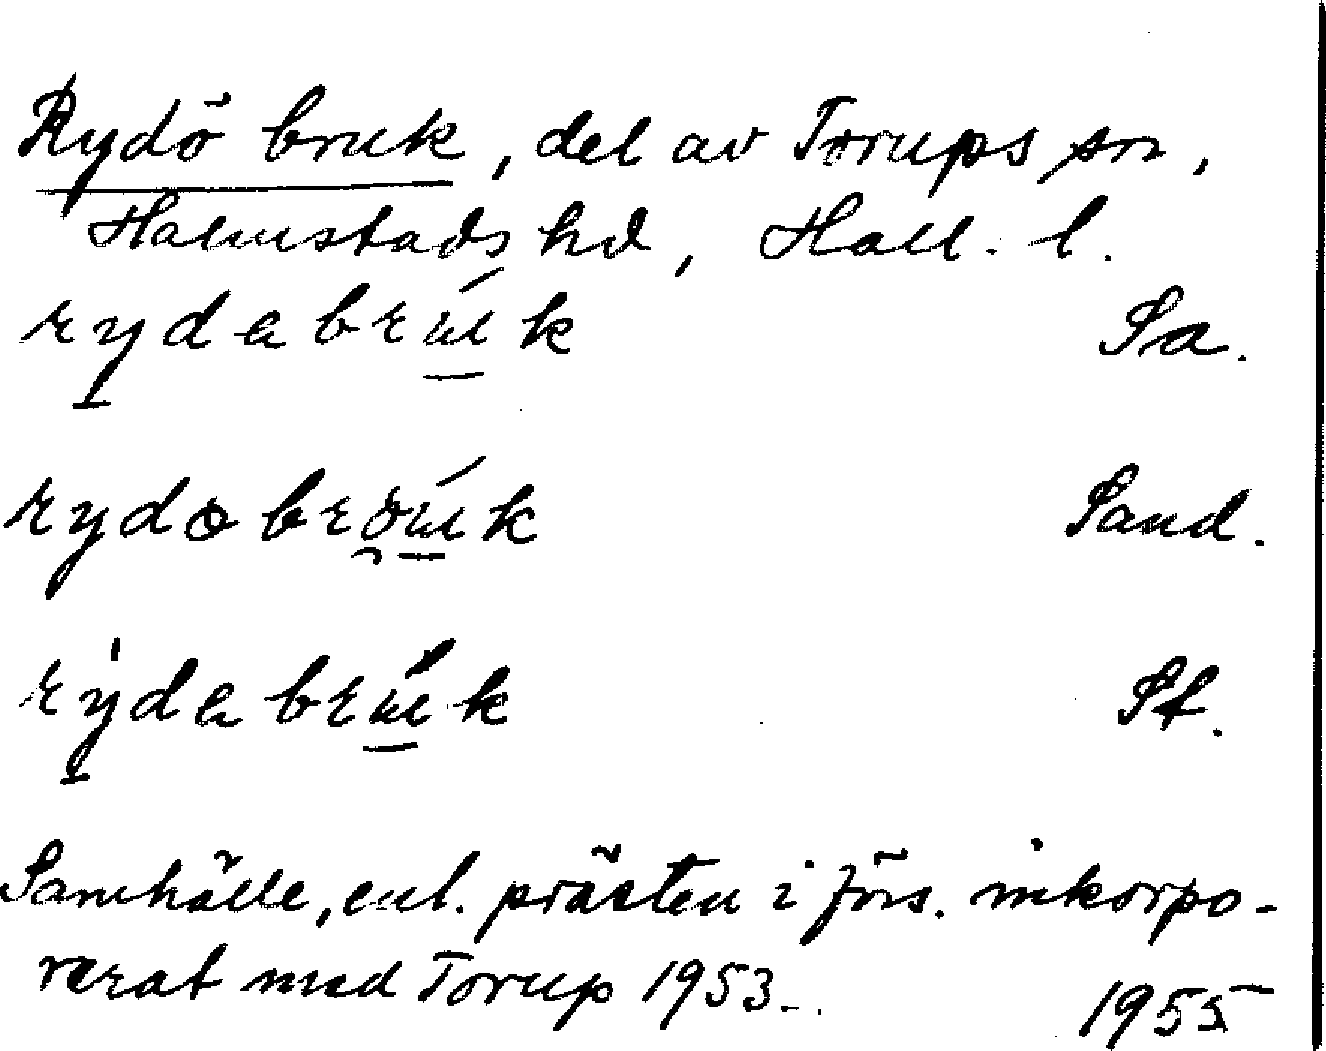 Rydö bruk, del av Torups sn,
Halmstads hd, Hall. l.
rydabrúk Sa.
rydobrúk Sand.
rýdabrúk St.
Samhälle, enl. prästen i förs. inkorpo-
rerat med Torup 1953.
1955